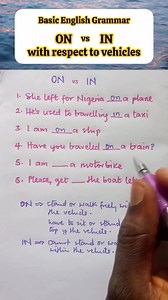 Basic English Grammar
ON vs IN
with respect to vehicles
ON vs IN
1. She left for Nigeria on a plane
2. He's used to travelling in a taxi
3. I am on a ship
4. Have you traveled on a train?
5. I am __ a motorbike
6. Please, get __ the boat
ON ⇒ stand or walk freely
the vehicle.
have to sit or
top of the vehicle.
IN ⇒ Cannot stand or
within the vehicle.